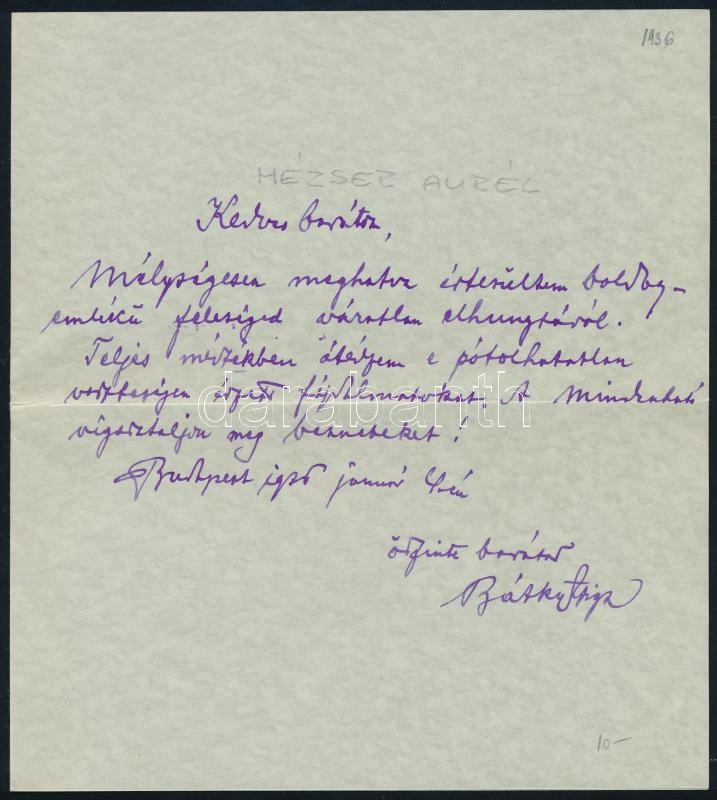 1936
MÉZSER AURÉL
Kedves barátom,
Mélységesen meghatva értesültem boldog-
emlékű feleséged váratlan elhunytáról.
Teljes mértékben átérzem e pótolhatatlan
veszteségen érzett fájdalmatokat. A Mindenható
vigasztaljon meg bennetek!
Budapest 1936 január
őszinte barátod
Bátky Zsiga
10-
darabanth